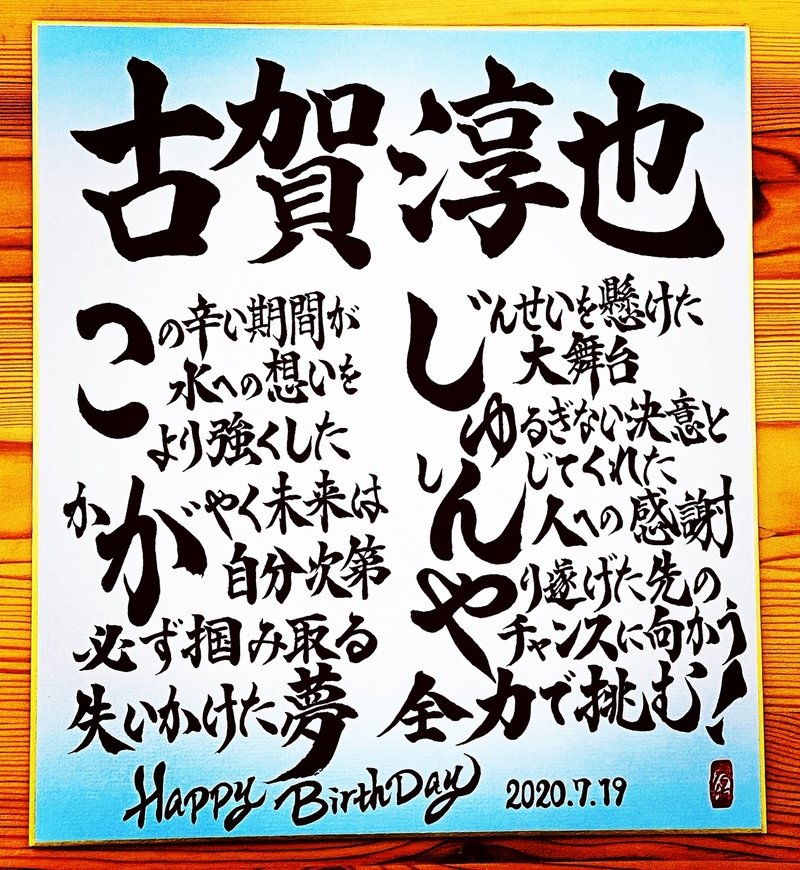 古賀淳也
この辛い期間が
水への想いを
より強くした
かがやく未来は
自分次第
必ず掴み取る
失いかけた夢
じんせいを懸けた
大舞台
ゆるぎない決意と
しんじてくれた
人への感謝
やり遂げた先の
チャンスに向かう
全力で挑む!
Happy BirthDay 2020.7.19